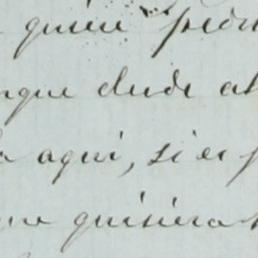 quien pedi
nque dude al
a aqui, si es p
ue quisiera